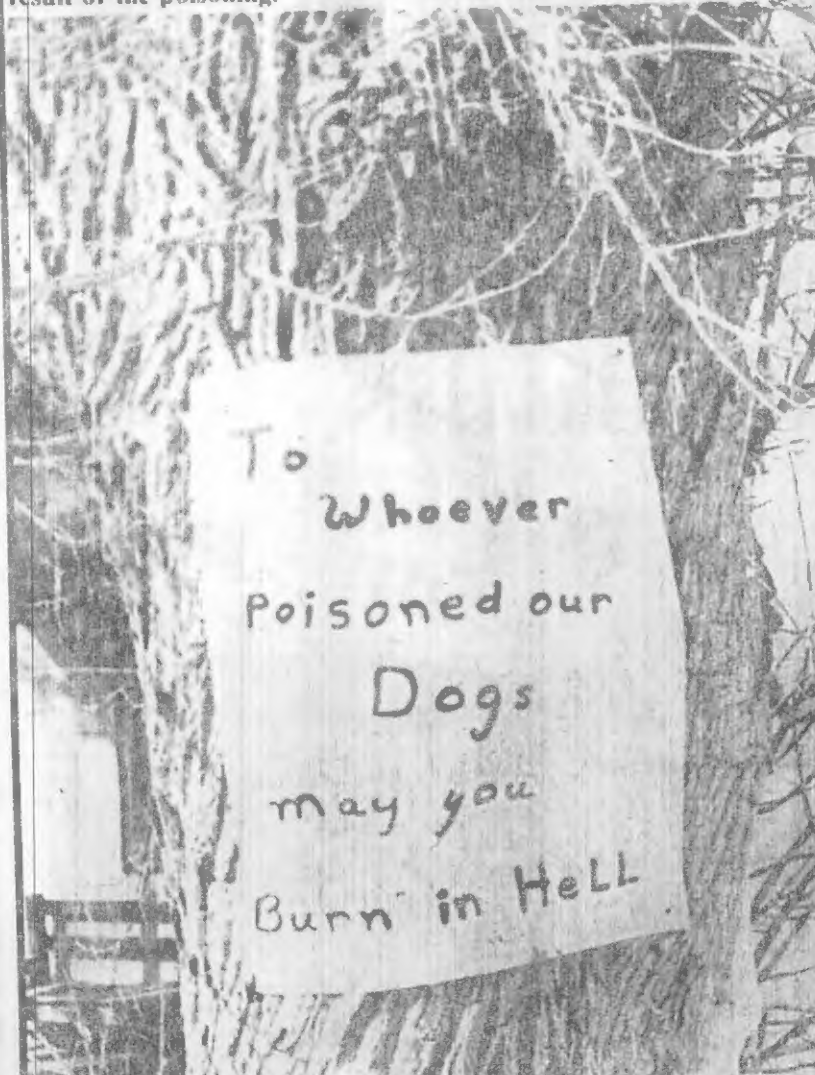 result of the poisoning.
To
Whoever
Poisoned our
Dogs
may you
Burn in HeLL